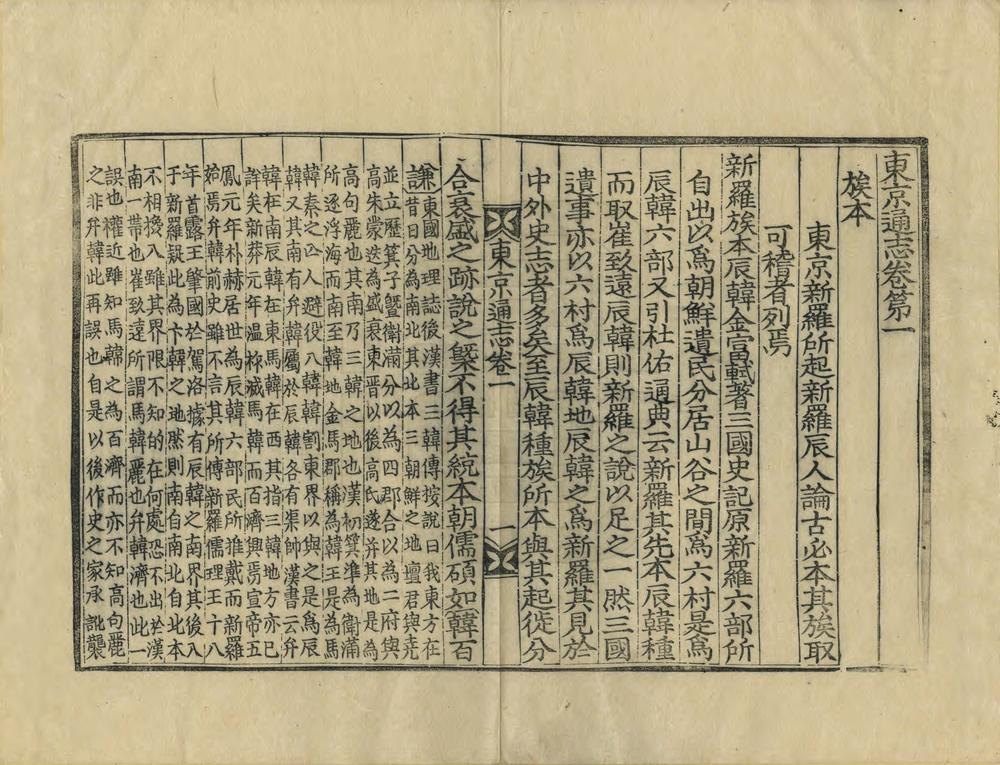 東京通志卷第一
族本
東京新羅所起新羅辰人論古必本其族取
可稽者列焉
新羅族本辰韓金富軾著三國史記原新羅六部所
自出以爲朝鮮遺民分居山谷之間爲六村是爲
辰韓六部又引杜佑通典云新羅其先本辰韓種
而取崔致遠辰韓則新羅之說以足之一然三國
遺事亦以六村爲辰韓地辰韓之爲新羅其見於
中外史志者多矣至辰韓種族所本與其起徙分
東京通志卷一
一
合衰盛之跡說之槩不得其統本朝儒碩如韓百
謙東國地理誌後漢書三韓傳按說曰我東方在
昔日分為南北其北本三朝鮮之地壇君與堯
並立歷箕子曁衛滿分以為四郡合以為二府與
高朱蒙迭為盛衰東晋以後高氏遂并其地是為
高句麗也其南乃三韓之地也漢初箕準為衛滿
所逐浮海而南至韓地金馬郡稱為韓王是為馬
韓秦之亡人避役入韓韓割東界以與之是爲辰
韓又其南有弁韓屬於辰韓各有渠帥漢書云弁
韓在南辰韓在東馬韓在西其指三韓地方亦已
詳矣新莽元年温祚滅馬韓而百濟興焉宣帝五
鳳元年朴赫居世為辰韓六部民所推戴而新羅
始焉弁韓前史雖不言其所傳新羅儒理王十八
年首露王肇國於駕洛據有辰韓之南界其後入
于新羅疑此為卞韓之地然則南自南北自北本
不相攙入雖其界限不知的在何處恐不出於漢
南一帶也崔致遠所謂馬韓麗也弁韓濟也此一
誤也權近雖知馬韓之為百濟而亦不知高句麗
之非弁韓此再誤也自是以後作史之家承訛襲